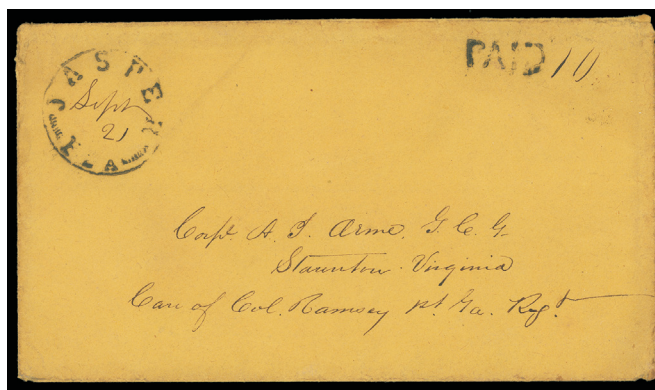 JASPER
Sept
21
FLA
PAID 10
Corpl. A. J. Arme. G. C. G.
Staunton Virginia
Care of Col. Ramsey 1st. Ga. Regt.